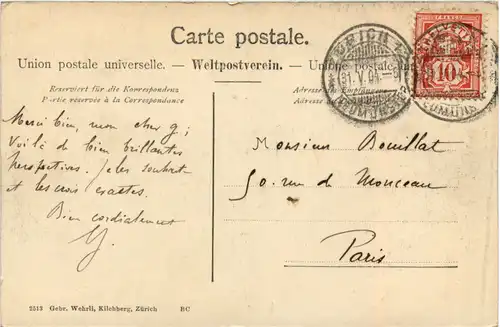 Carte postale.
Union postale universelle. — Weltpostverein. — Unione postale un
Reserviert für die Korrespondenz
Partie réservée à la Correspondance
Adresse
Adresse
ZÜRICH
31.V.04.-9
FRANCO
10
Merci bien, mon cher G;
Voilà de bien brillantes
perspectives. Je les souhaite
et les crois exactes.
Bien cordialement
Monsieur Bouillat
50. rue de Monceau
Paris
2513 Gebr. Wehrli, Kilchberg, Zürich BC